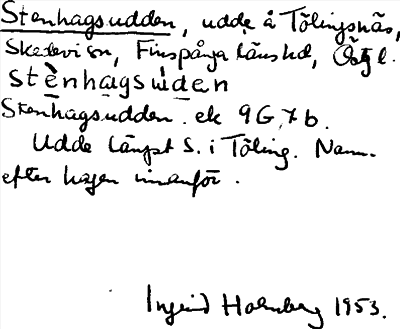 Stenhagsudden, udde å Tölingsnäs,
Skedevi sn, Finspånga länshd, Ögl.
stènhagsùden
Stenhagsudden. ek 9G,7b.
Udde längst S. i Töling. Namn.
efter hagen innanför.
Ingrid Holmberg 1953.